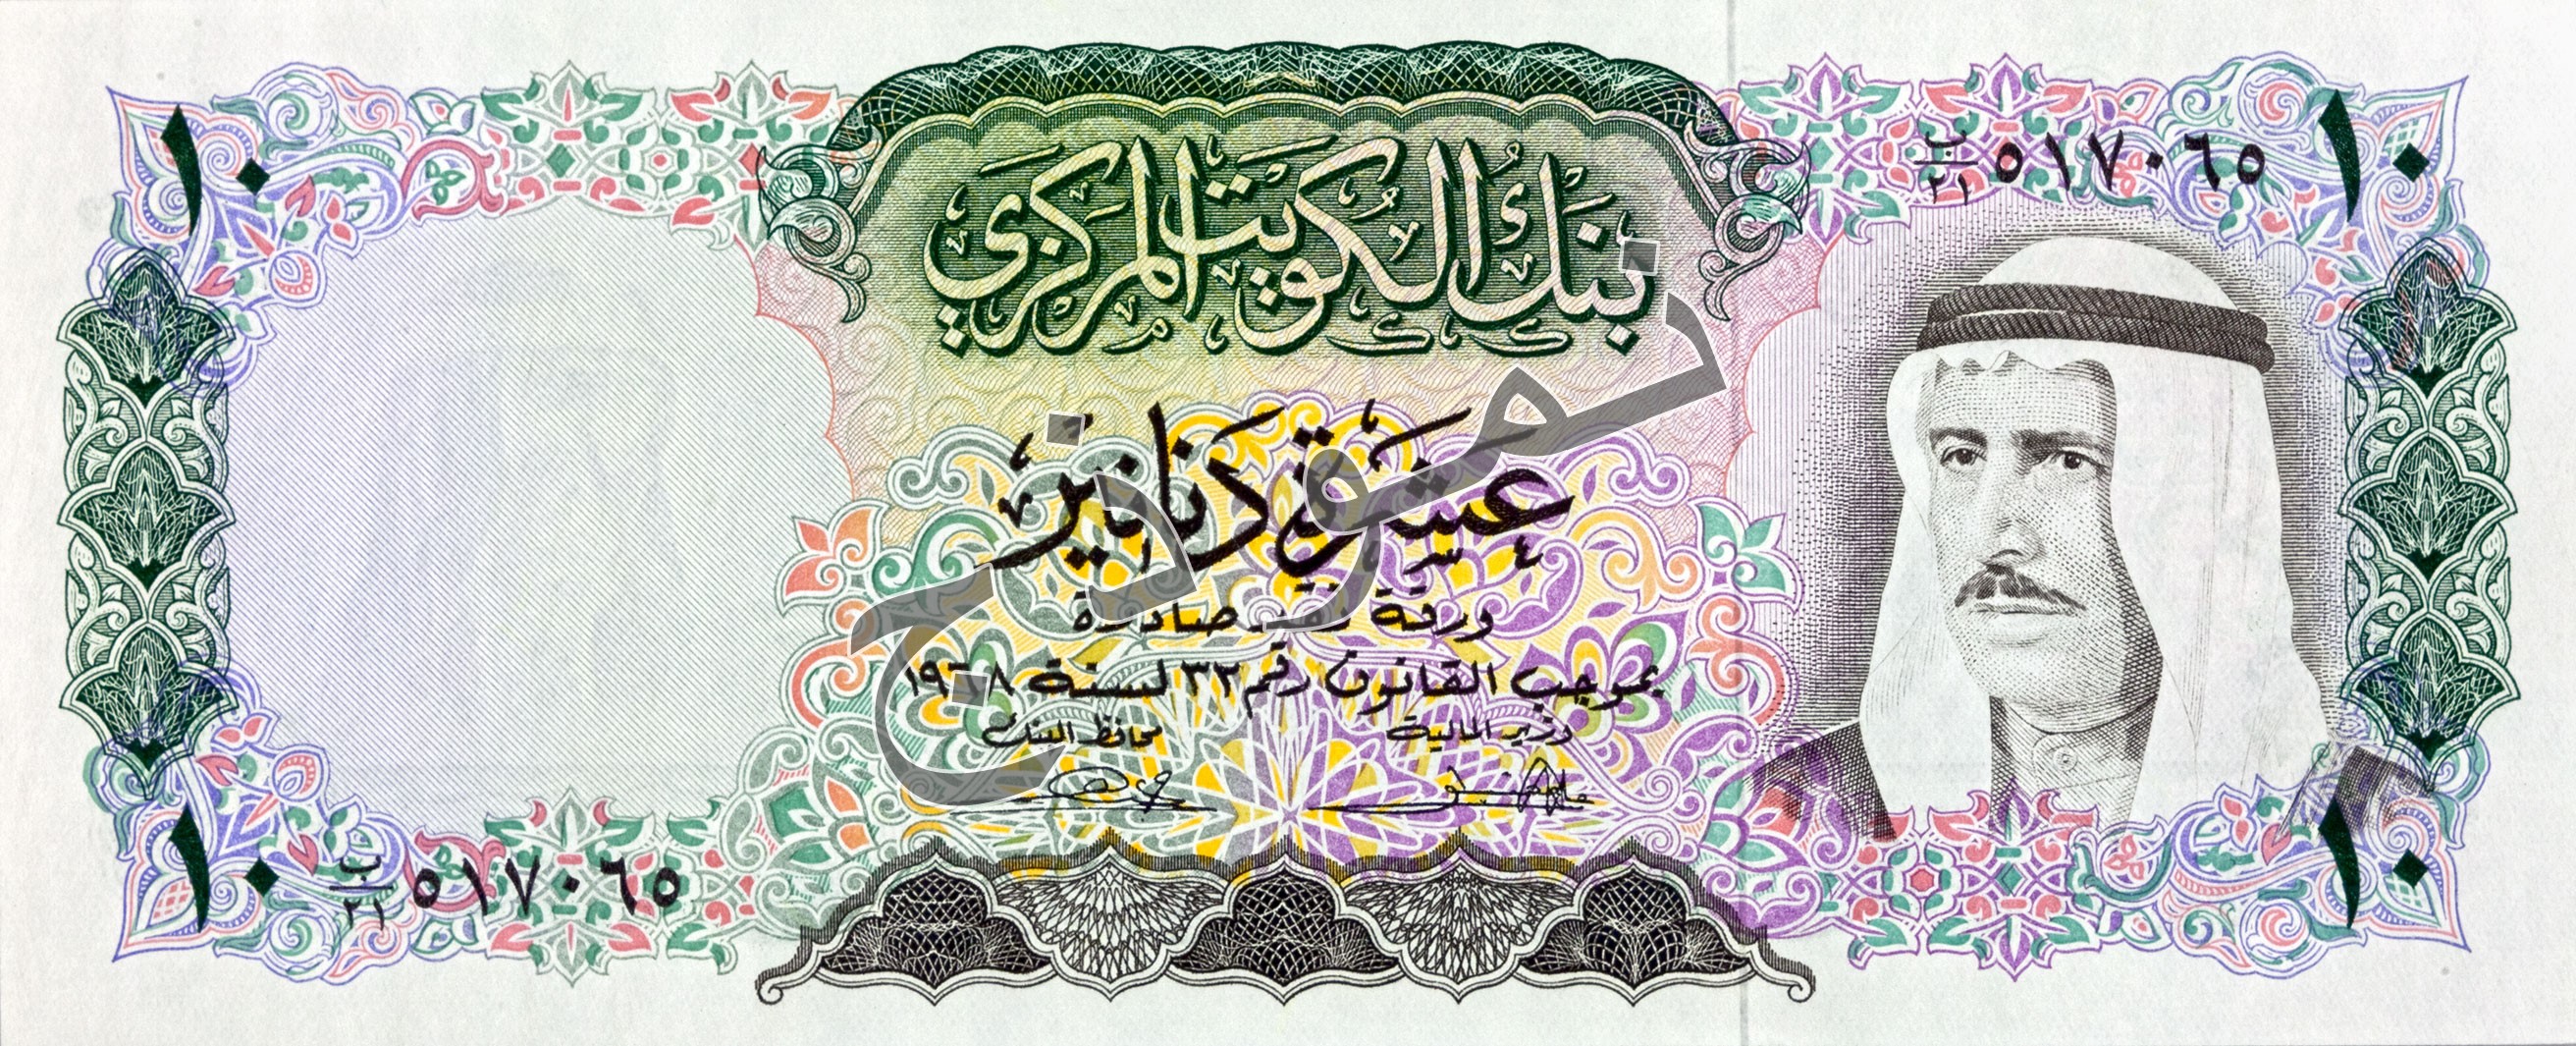 ١٠
١٠
ب/٢١ ٥١٧٠٦٥
بنك الكويت المركزي
عشرة دنانير
ورقة نقد صادرة
بموجب القانون رقم ٣٢ لسنة ١٩٦٨
وزير المالية
محافظ البنك
نموذج
ب/٢١ ٥١٧٠٦٥
١٠
١٠